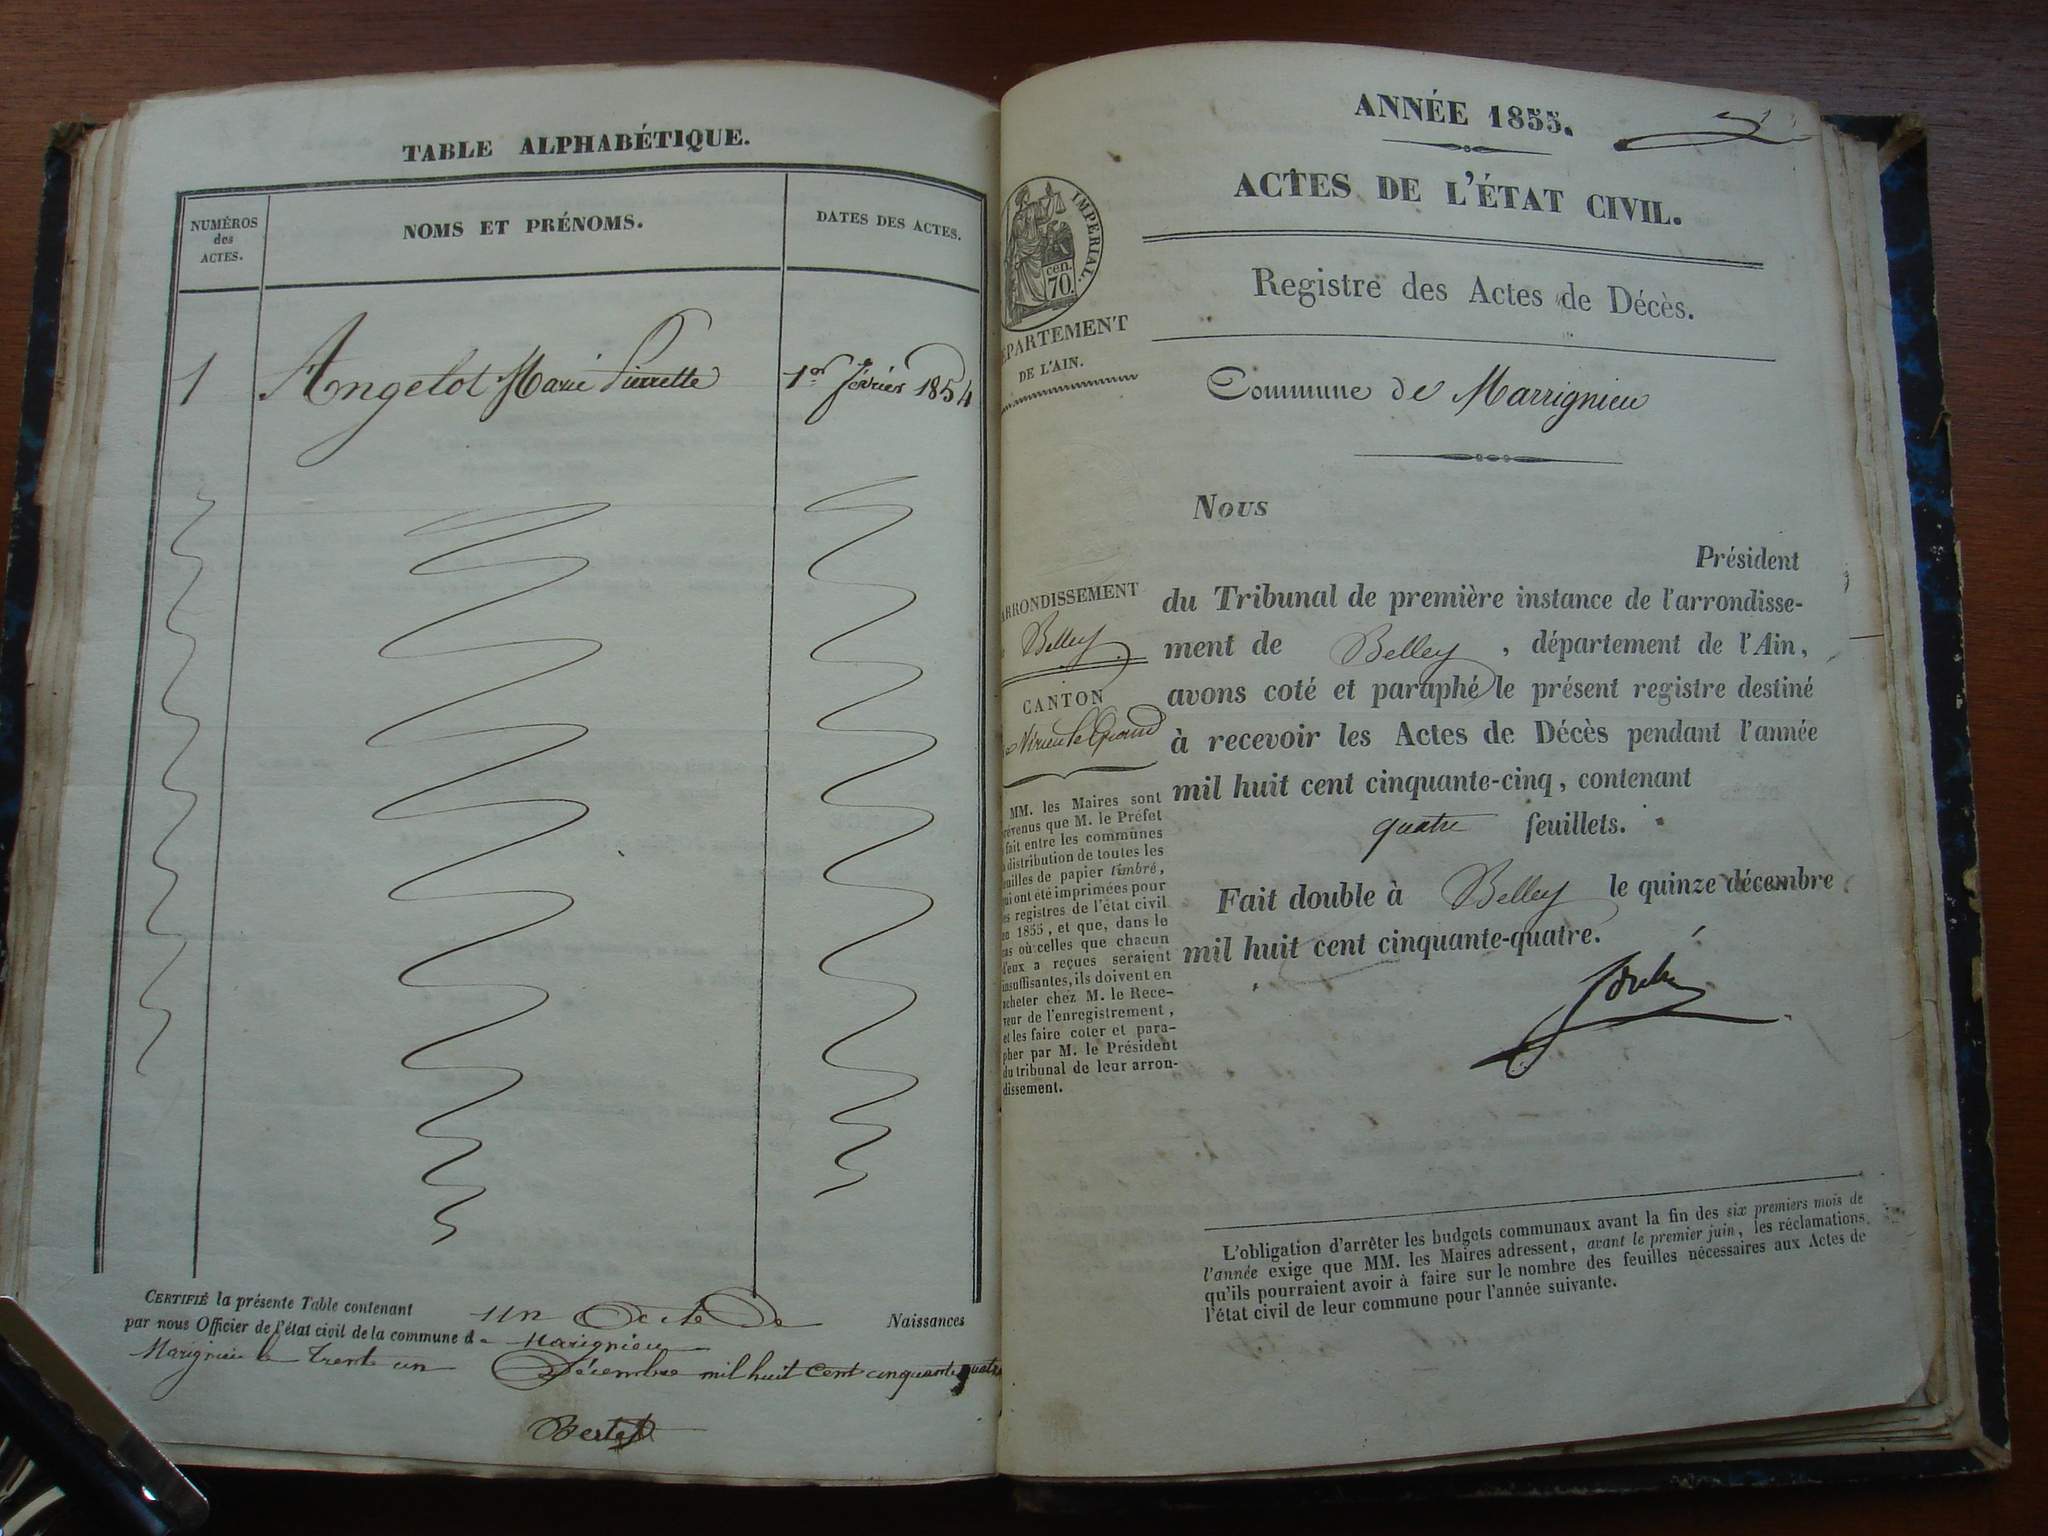 TABLE ALPHABÉTIQUE.
NUMÉROS
des
ACTES.
NOMS ET PRÉNOMS.
DATES DES ACTES.
1 Angelot Marie Pierrette 1er février 1854
CERTIFIÉ la présente Table contenant un acte de Naissances
par nous Officier de l'état civil de la commune de Marignieu
Marignieu le trente un Décembre mil huit cent cinquante quatre
ANNÉE 1855.
ACTES DE L'ÉTAT CIVIL.
IMPÉRIAL.
cen.
70.
Registre des Actes de Décès.
ÉPARTEMENT
DE L'AIN.
Commune de Marrignieu
Nous
Président
du Tribunal de première instance de l'arrondisse-
ment de Belley, département de l'Ain,
avons coté et paraphé le présent registre destiné
à recevoir les Actes de Décès pendant l'année
mil huit cent cinquante-cinq, contenant
quatre feuillets.
Fait double à Belley le quinze décembre
mil huit cent cinquante-quatre.
ARRONDISSEMENT
Belley
CANTON
Virieu le Grand
MM. les Maires sont
révenus que M. le Préfet
fait entre les communes
distribution de toutes les
euilles de papier timbré,
ui ont été imprimées pour
es registres de l'état civil
n 1855, et que, dans le
as où celles que chacun
d'eux a reçues seraient
insuffisantes, ils doivent en
acheter chez M. le Rece-
veur de l'enregistrement,
et les faire coter et para-
pher par M. le Président
du tribunal de leur arron-
dissement.
L'obligation d'arrêter les budgets communaux avant la fin des six premiers mois de
l'année exige que MM. les Maires adressent, avant le premier juin, les réclamations
qu'ils pourraient avoir à faire sur le nombre des feuilles nécessaires aux Actes de
l'état civil de leur commune pour l'année suivante.